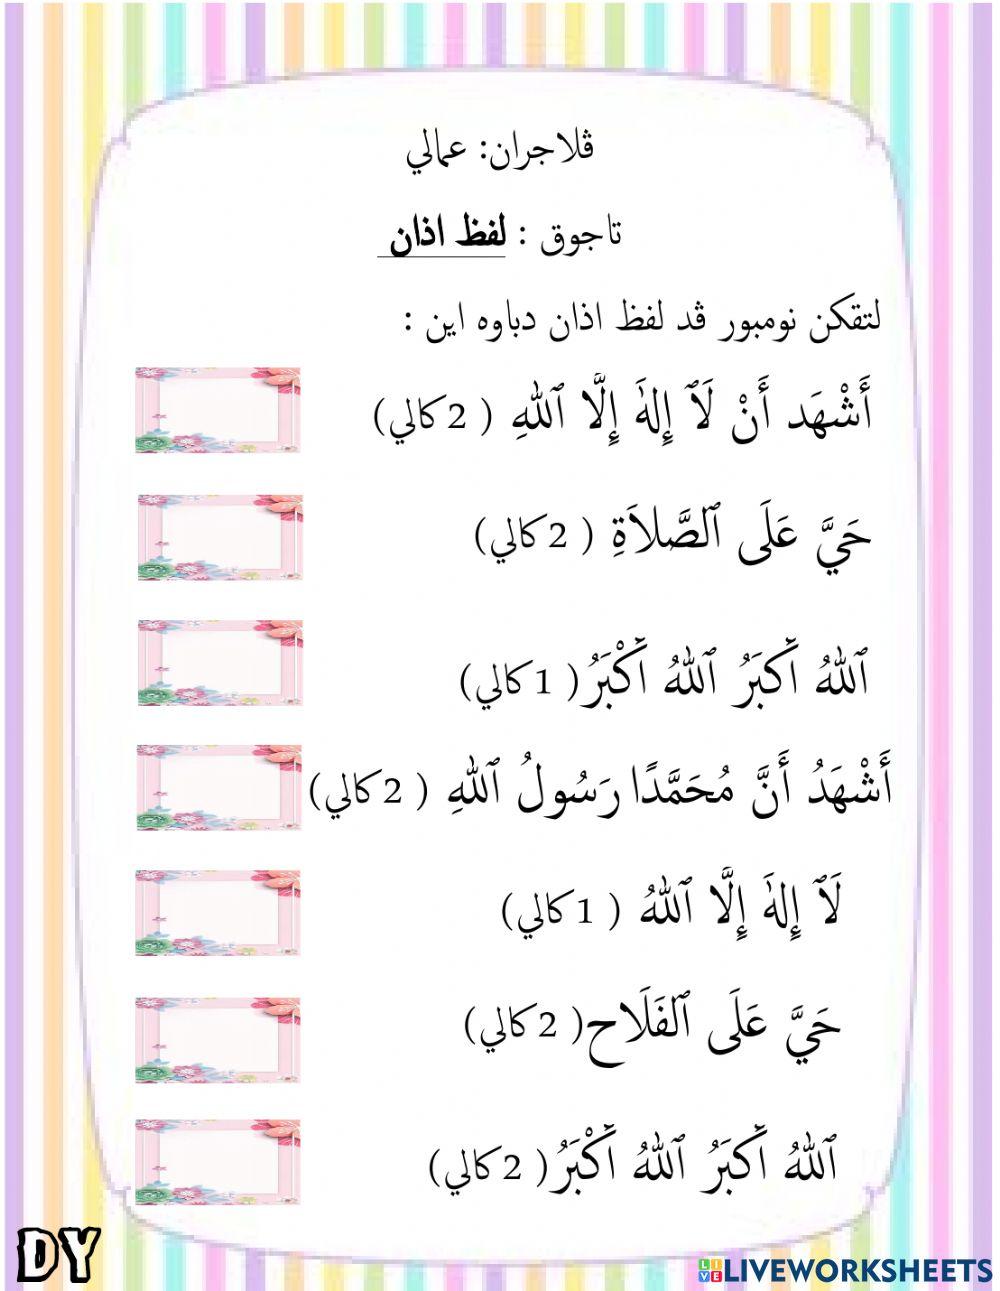 ڤلاجران: عمالي
تاجوق : لفظ اذان
لتقكن نومبور ڤد لفظ اذان دباوه اين :
أَشْهَد أَنْ لَآ إِلهَٰ إِلَّا ٱللهِ ( 2 كالي)
حَيَّ عَلَى ٱلصَّلاَةِ ( 2 كالي)
ٱللهُ أَكبَرُ ٱللهُ أَكْبَرُ ( 1 كالي)
أَشْهَدُ أَنَّ مُحَمَّدًا رَسُولُ ٱللهِ ( 2 كالي)
لَآ إِلهَٰ إِلَّا ٱللهُ ( 1 كالي)
حَيَّ عَلَى ٱلفَلَاح ( 2 كالي)
ٱللهُ أَكبَرُ ٱللهُ أَكْبَرُ ( 2 كالي)
DY
LIVE LIVEWORKSHEETS